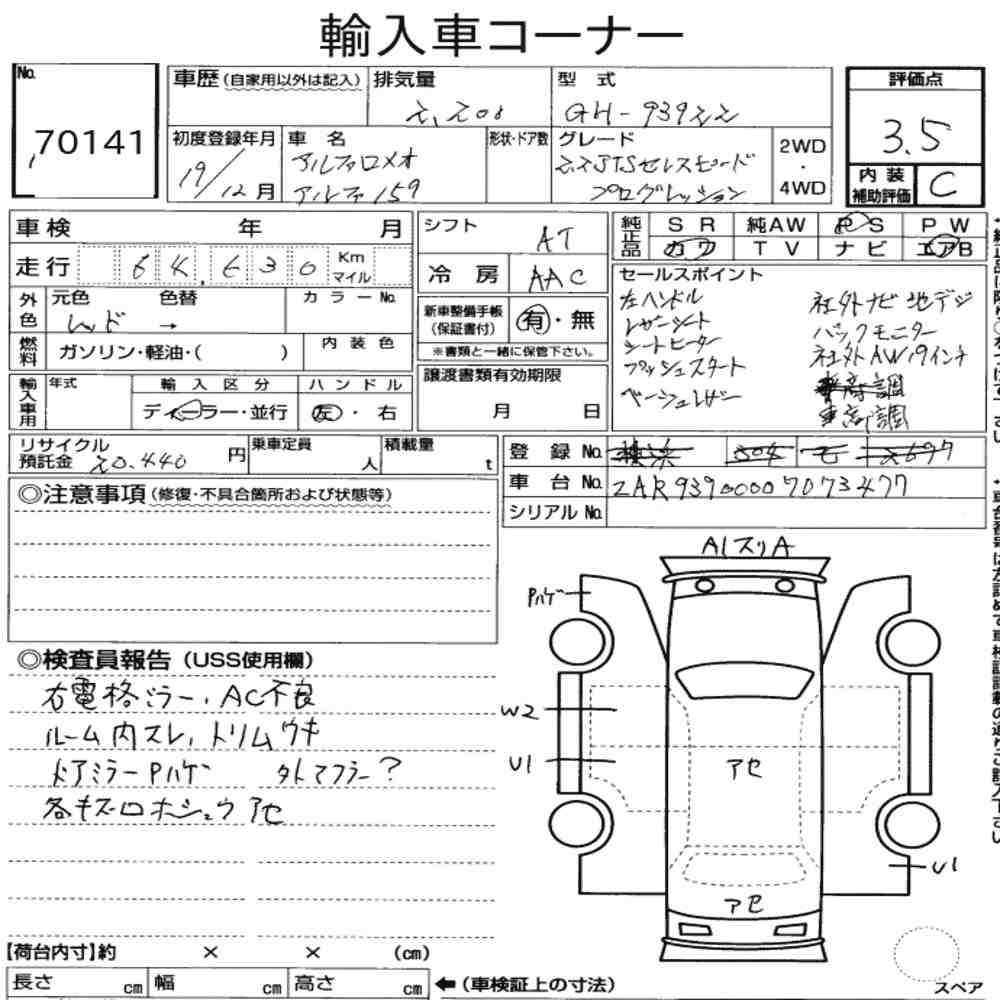 輸入車コーナー
No.
70141
車歴(自家用以外は記入)
排気量
2,200
型 式
GH-93922
評価点
3.5
初度登録年月
19/12月
車 名
アルファロメオ
アルファ159
形状・ドア数
グレード
2.2JTSセレスピード
プログレッション
2WD
・
4WD
内 装
補助評価
C
車検 年 月
走行 64,630 Km
マイル
シフト
AT
冷 房
AAC
純正品
SR 純AW PS PW
カワ TV ナビ エアB
外色
元色 色替
レッド →
カラーNo.
燃料
ガソリン・軽油・( )
内 装 色
新車整備手帳
(保証書付)
有・無
※書類と一緒に保管下さい。
セールスポイント
左ハンドル
レザーシート
シートヒーター
プッシュスタート
ベージュレザー
社外ナビ 地デジ
バックモニター
社外AW19インチ
車高調
輸入車用
年式
輸 入 区 分
ディーラー・並行
ハンドル
左・右
譲渡書類有効期限
月 日
リサイクル
預託金 20.440 円
乗車定員
人
積載量
t
登 録 No.
車 台 No. ZAR93900007073477
シリアル No.
◎注意事項(修復・不具合箇所および状態等)
◎検査員報告(USS使用欄)
右電格ミラー、AC不良
ルーム内スレ、トリムウキ
ドアミラーPハゲ 外マフラー?
各キズ ホシュウ アセ
A1スリA
Pハゲ
W2
U1
アセ
U1
アセ
【荷台内寸】約 × × (cm)
長さ cm 幅 cm 高さ cm
←(車検証上の寸法)
スペア